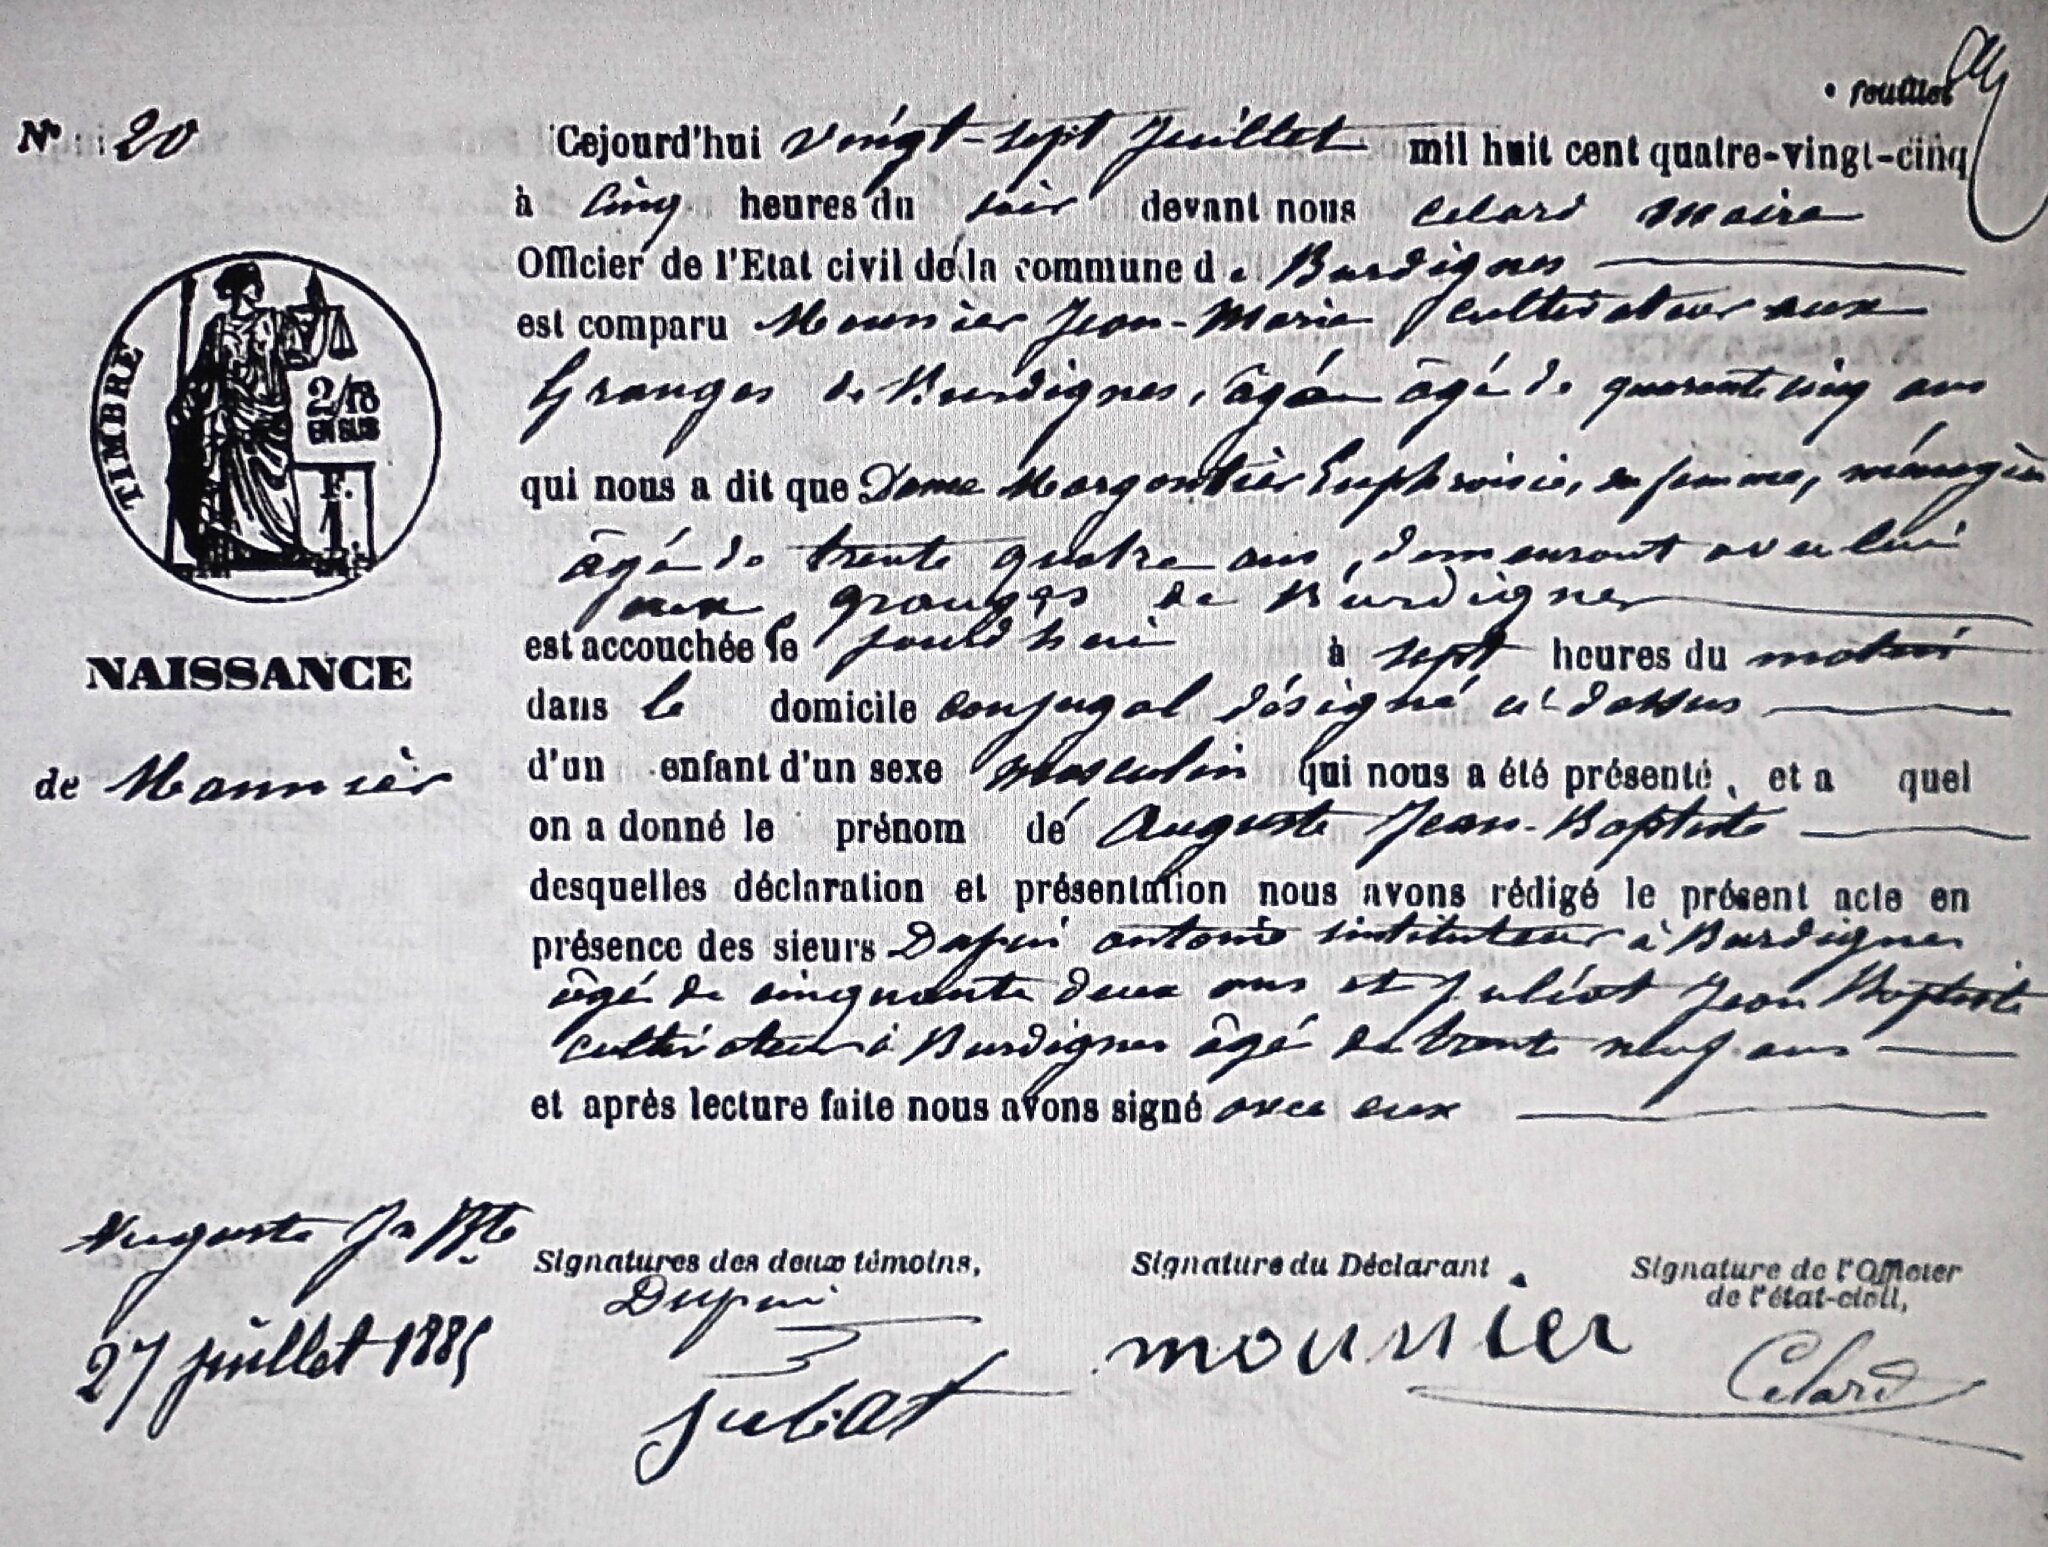 feuillet
N° 20
Cejourd'hui vingt-sept juillet mil huit cent quatre-vingt-cinq
à cinq heures du soir devant nous Celard maire
Officier de l'Etat civil de la commune de Burdignes
est comparu Mounier Jean-Marie cultivateur aux
Granges de Burdignes, âgée âgé de quarante cinq ans
qui nous a dit que Dame Margontier Euphroisie, sa femme, ménagère
âgée de trente quatre ans, demeurant avec lui
aux granges de Burdignes
est accouchée le jourd'hui à sept heures du matin
dans le domicile conjugal désigné ci-dessus
d'un enfant d'un sexe masculin qui nous a été présenté, et a quel
on a donné le prénom dé Auguste Jean-Baptiste
desquelles déclaration et présentation nous avons rédigé le présent acte en
présence des sieurs Dupui antoine instituteur à Burdignes
âgé de cinquante deux ans et Juliat Jean Baptiste
cultivateur à Burdignes âgé de trente neuf ans
et après lecture faite nous avons signé avec eux
TIMBRE
2/10
EN SUS
F.
NAISSANCE
de Mounier
Auguste Jn Bte
27 juillet 1885
Signatures des deux témoins,
Dupui
Juliat
Signature du Déclarant
mounier
Signature de l'Officier
de l'état-civil,
Celard